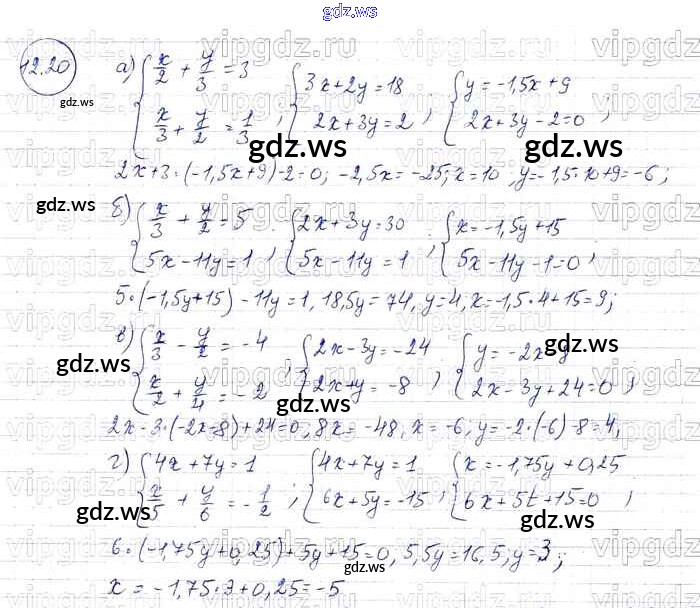 gdz.ws
12.20
а) { x/2 + y/3 = 3
x/3 + y/2 = 1/3 ; { 3x+2y=18
2x+3y=2 ; { y=-1,5x+9
2x+3y-2=0 ;
2x+3·(-1,5x+9)-2=0; -2,5x=-25; x=10 ; y=-1,5·10+9=-6;
б) { x/3 + y/2 = 5
5x-11y=1 ; { 2x+3y=30
5x-11y=1 ; { x=-1,5y+15
5x-11y-1=0 ;
5·(-1,5y+15)-11y=1, 18,5y=74, y=4, x=-1,5·4+15=9;
в) { x/3 - y/2 = -4
x/2 + y/4 = -2 ; { 2x-3y=-24
2x+y=-8 ; { y=-2x-8
2x-3y+24=0 ;
2x-3·(-2x-8)+24=0, 8x=-48, x=-6, y=-2·(-6)-8=4,
г) { 4x+7y=1
x/5 + y/6 = -1/2 ; { 4x+7y=1
6x+5y=-15 ; { x=-1,75y+0,25
6x+5t+15=0 ;
6·(-1,75y+0,25)+5y+15=0, 5,5y=16,5, y=3;
x=-1,75·3+0,25=-5
gdz.ws
vipgdz.ru